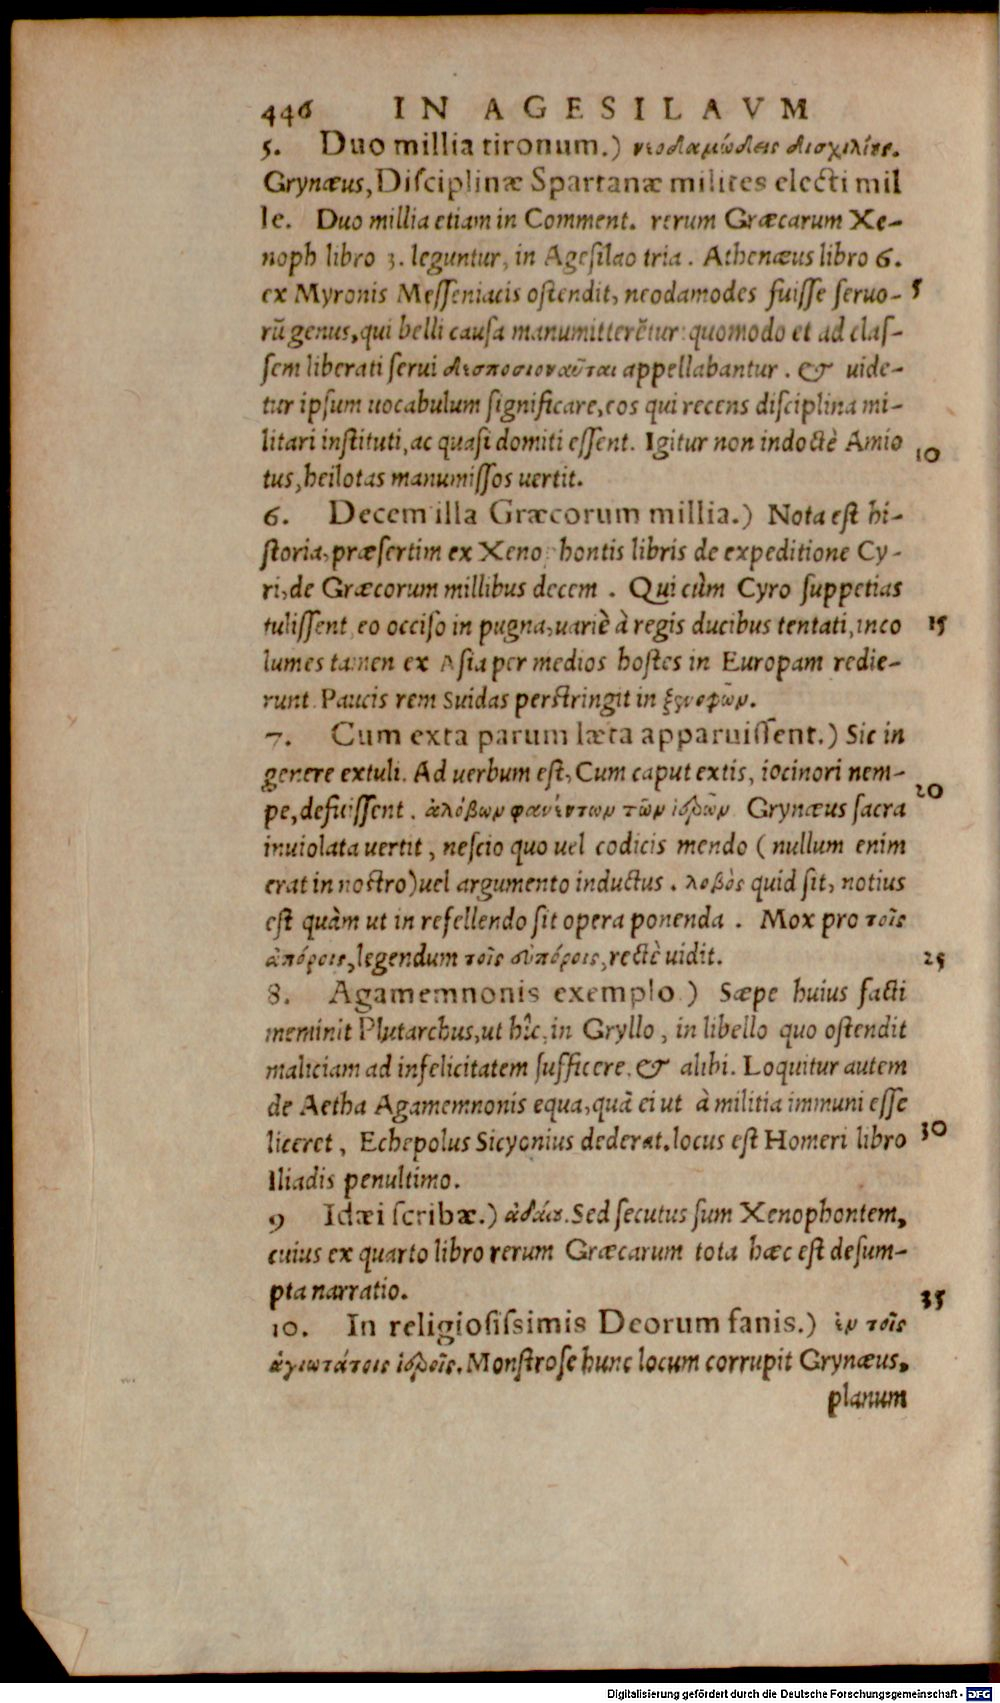 446 IN AGESILAVM
5. Duo millia tironum.) νεοδαμώδεις δισχιλίȣς.
Grynæus, Diſciplinæ Spartanæ milites electi mil
le. Duo millia etiam in Comment. rerum Græcarum Xe-
noph libro 3. leguntur, in Ageſilao tria. Athenæus libro 6.
ex Myronis Meſſeniacis oſtendit, neodamodes fuiſſe ſeruo- 5
rũ genus, qui belli cauſa manumitterẽtur: quomodo et ad claſ-
ſem liberati ſerui δεσποσιοναῦται appellabantur. & uide-
tur ipſum uocabulum ſignificare, eos qui recens diſciplina mi-
litari inſtituti, ac quaſi domiti eſſent. Igitur non indoctè Amio 10
tus, heilotas manumiſſos uertit.
6. Decem illa Græcorum millia.) Nota eſt hi-
ſtoria, præſertim ex Xenophontis libris de expeditione Cy-
ri, de Græcorum millibus decem. Qui cùm Cyro ſuppetias
tuliſſent, eo occiſo in pugna, uariè à regis ducibus tentati, inco 15
lumes tamen ex Aſia per medios hoſtes in Europam redie-
runt. Paucis rem Suidas perſtringit in ξενοφῶν.
7. Cum exta parum læta apparuiſſent.) Sic in
genere extuli. Ad uerbum eſt, Cum caput extis, iocinori nem- 20
pe, defuiſſent. ἀλόβων φανέντων τῶν ἱερῶν. Grynæus ſacra
inuiolata uertit, neſcio quo uel codicis mendo (nullum enim
erat in noſtro) uel argumento inductus. λοβὸς quid ſit, notius
eſt quàm ut in refellendo ſit opera ponenda. Mox pro τοῖς
ἀπόροις, legendum τοῖς εὐπόροις, rectè uidit. 25
8. Agamemnonis exemplo.) Sæpe huius facti
meminit Plutarchus, ut hîc, in Gryllo, in libello quo oſtendit
maliciam ad infelicitatem ſufficere, & alibi. Loquitur autem
de Aetha Agamemnonis equa, quã ei ut à militia immuni eſſe
liceret, Echepolus Sicyonius dederat. locus eſt Homeri libro 30
Iliadis penultimo.
9 Idæi ſcribæ.) ἀδάιȣ. Sed ſecutus ſum Xenophontem,
cuius ex quarto libro rerum Græcarum tota hæc eſt deſum-
pta narratio.
35
10. In religioſiſsimis Deorum fanis.) ἐν τοῖς
ἁγιωτάτοις ἱεροῖς. Monſtroſe hunc locum corrupit Grynæus,
planum
Digitalisierung gefördert durch die Deutsche Forschungsgemeinschaft - DFG